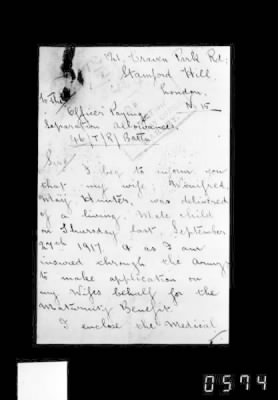 Craven Park Rd.
Stamford Hill.
London.
N. 15
To the
Officer Paying
Separation Allowances.
T/R/ Battn
Sir,
I beg to inform you
that my wife, Winifred
May Hunter, was delivered
of a living Male child
on Thursday last September
27th 1917. & as I am
insured through the Army
to make application on
my Wifes behalf for the
Maternity Benefit
I enclose the Medical
0574